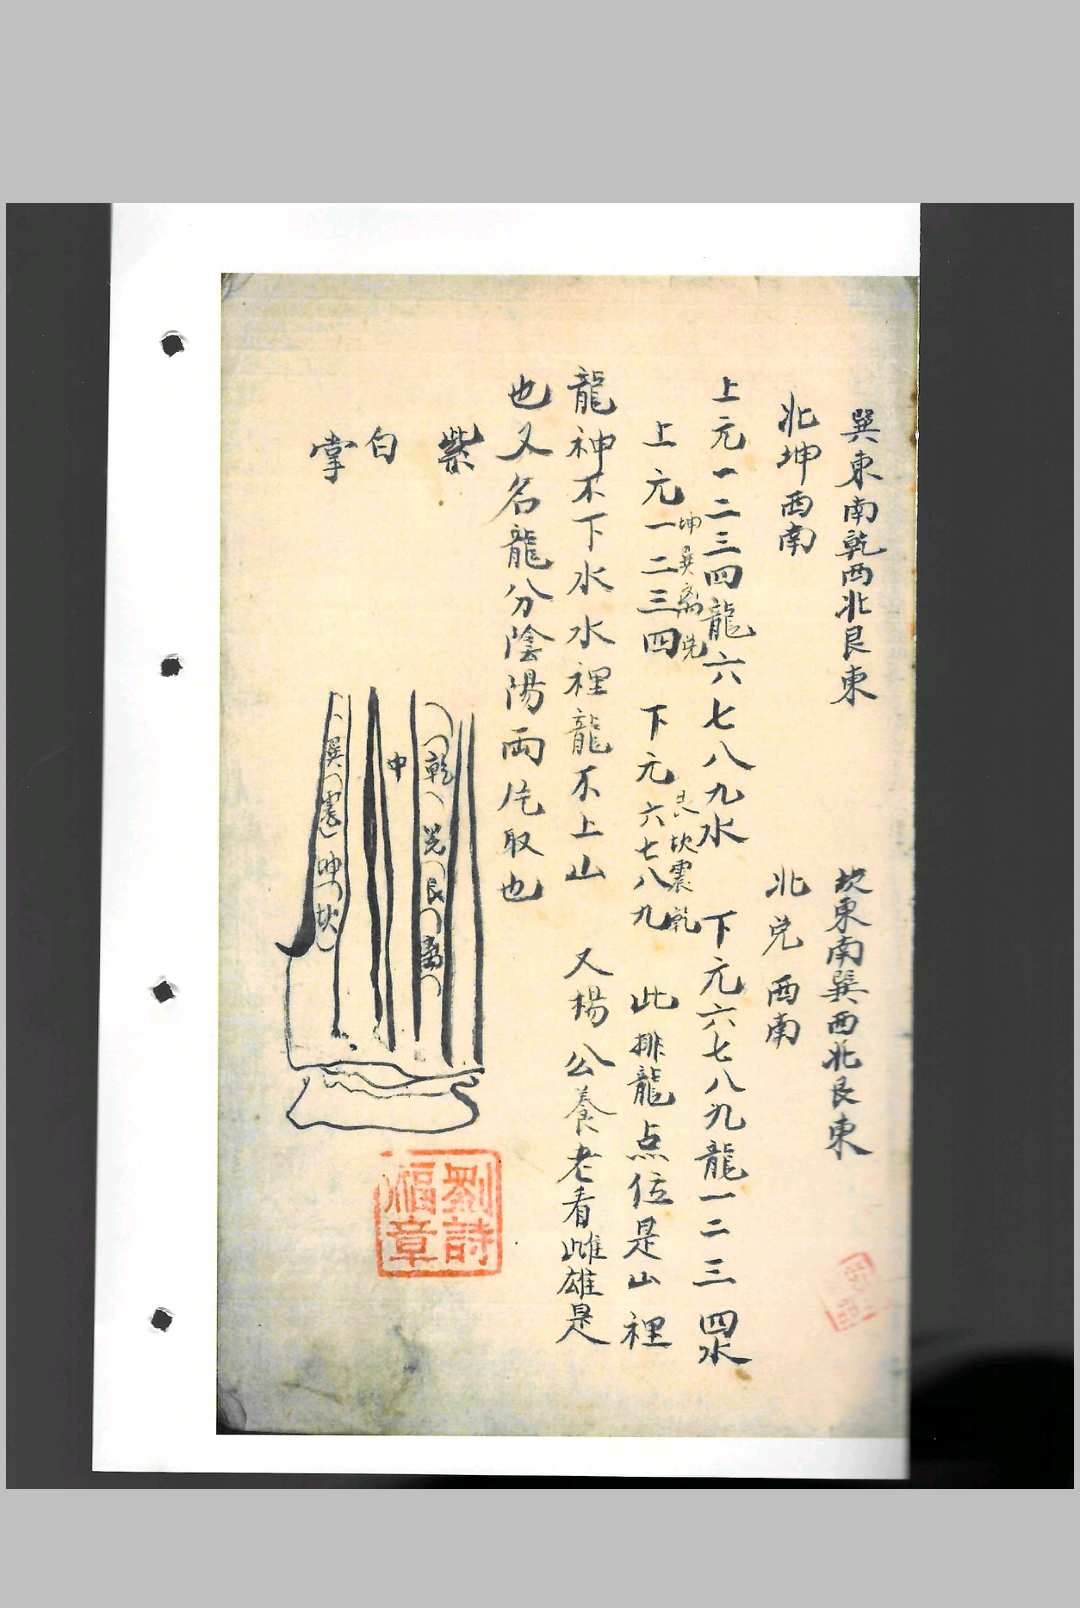 巽東南乾西北艮東
北坤西南
坎東南巽西北艮東
北兌西南
上元一二三四龍六七八九水　下元六七八九龍一二三四水
坤巽离兌
艮坎震乾
上元一二三四　下元六七八九　此排龍点位是山裡
龍神不下水水裡龍不上山　又楊公養老看雌雄是
也又名龍分陰陽兩片取也
紫
白
掌
乾兌艮离
中
巽震坤坎
劉詩
福章